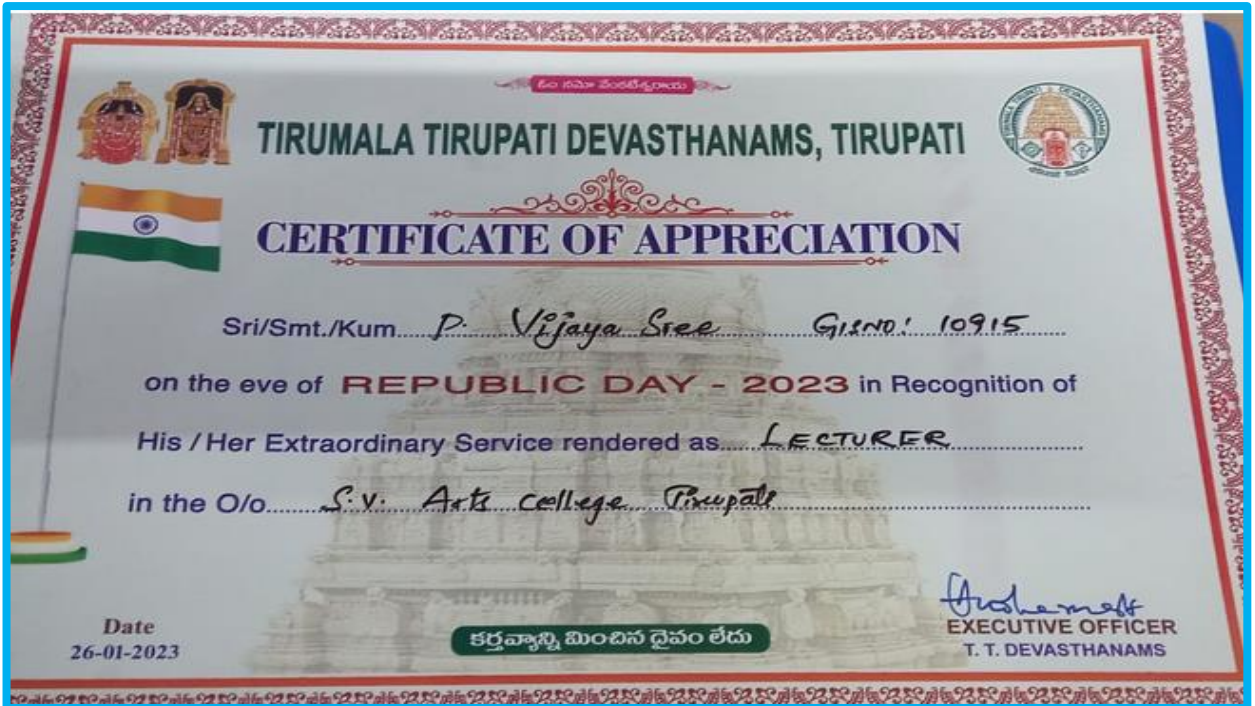 ఓం నమో వేంకటేశ్వరాయ
TIRUMALA TIRUPATI DEVASTHANAMS, TIRUPATI
TIRUMALA TIRUPATI DEVASTHANAMS
CERTIFICATE OF APPRECIATION
Sri/Smt./Kum P. Vijaya Sree GISNO: 10915
on the eve of REPUBLIC DAY - 2023 in Recognition of
His / Her Extraordinary Service rendered as LECTURER
in the O/o S.V. Arts college Tirupati
Date
26-01-2023
కర్తవ్యాన్ని మించిన దైవం లేదు
EXECUTIVE OFFICER
T. T. DEVASTHANAMS